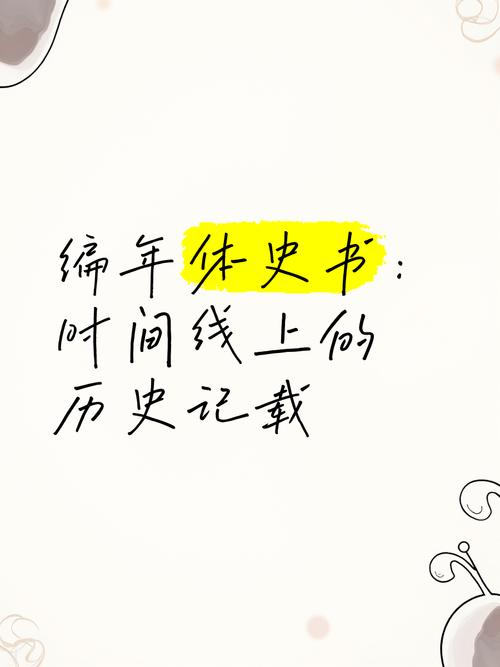 编年体史书：
时间线上的
历史记载